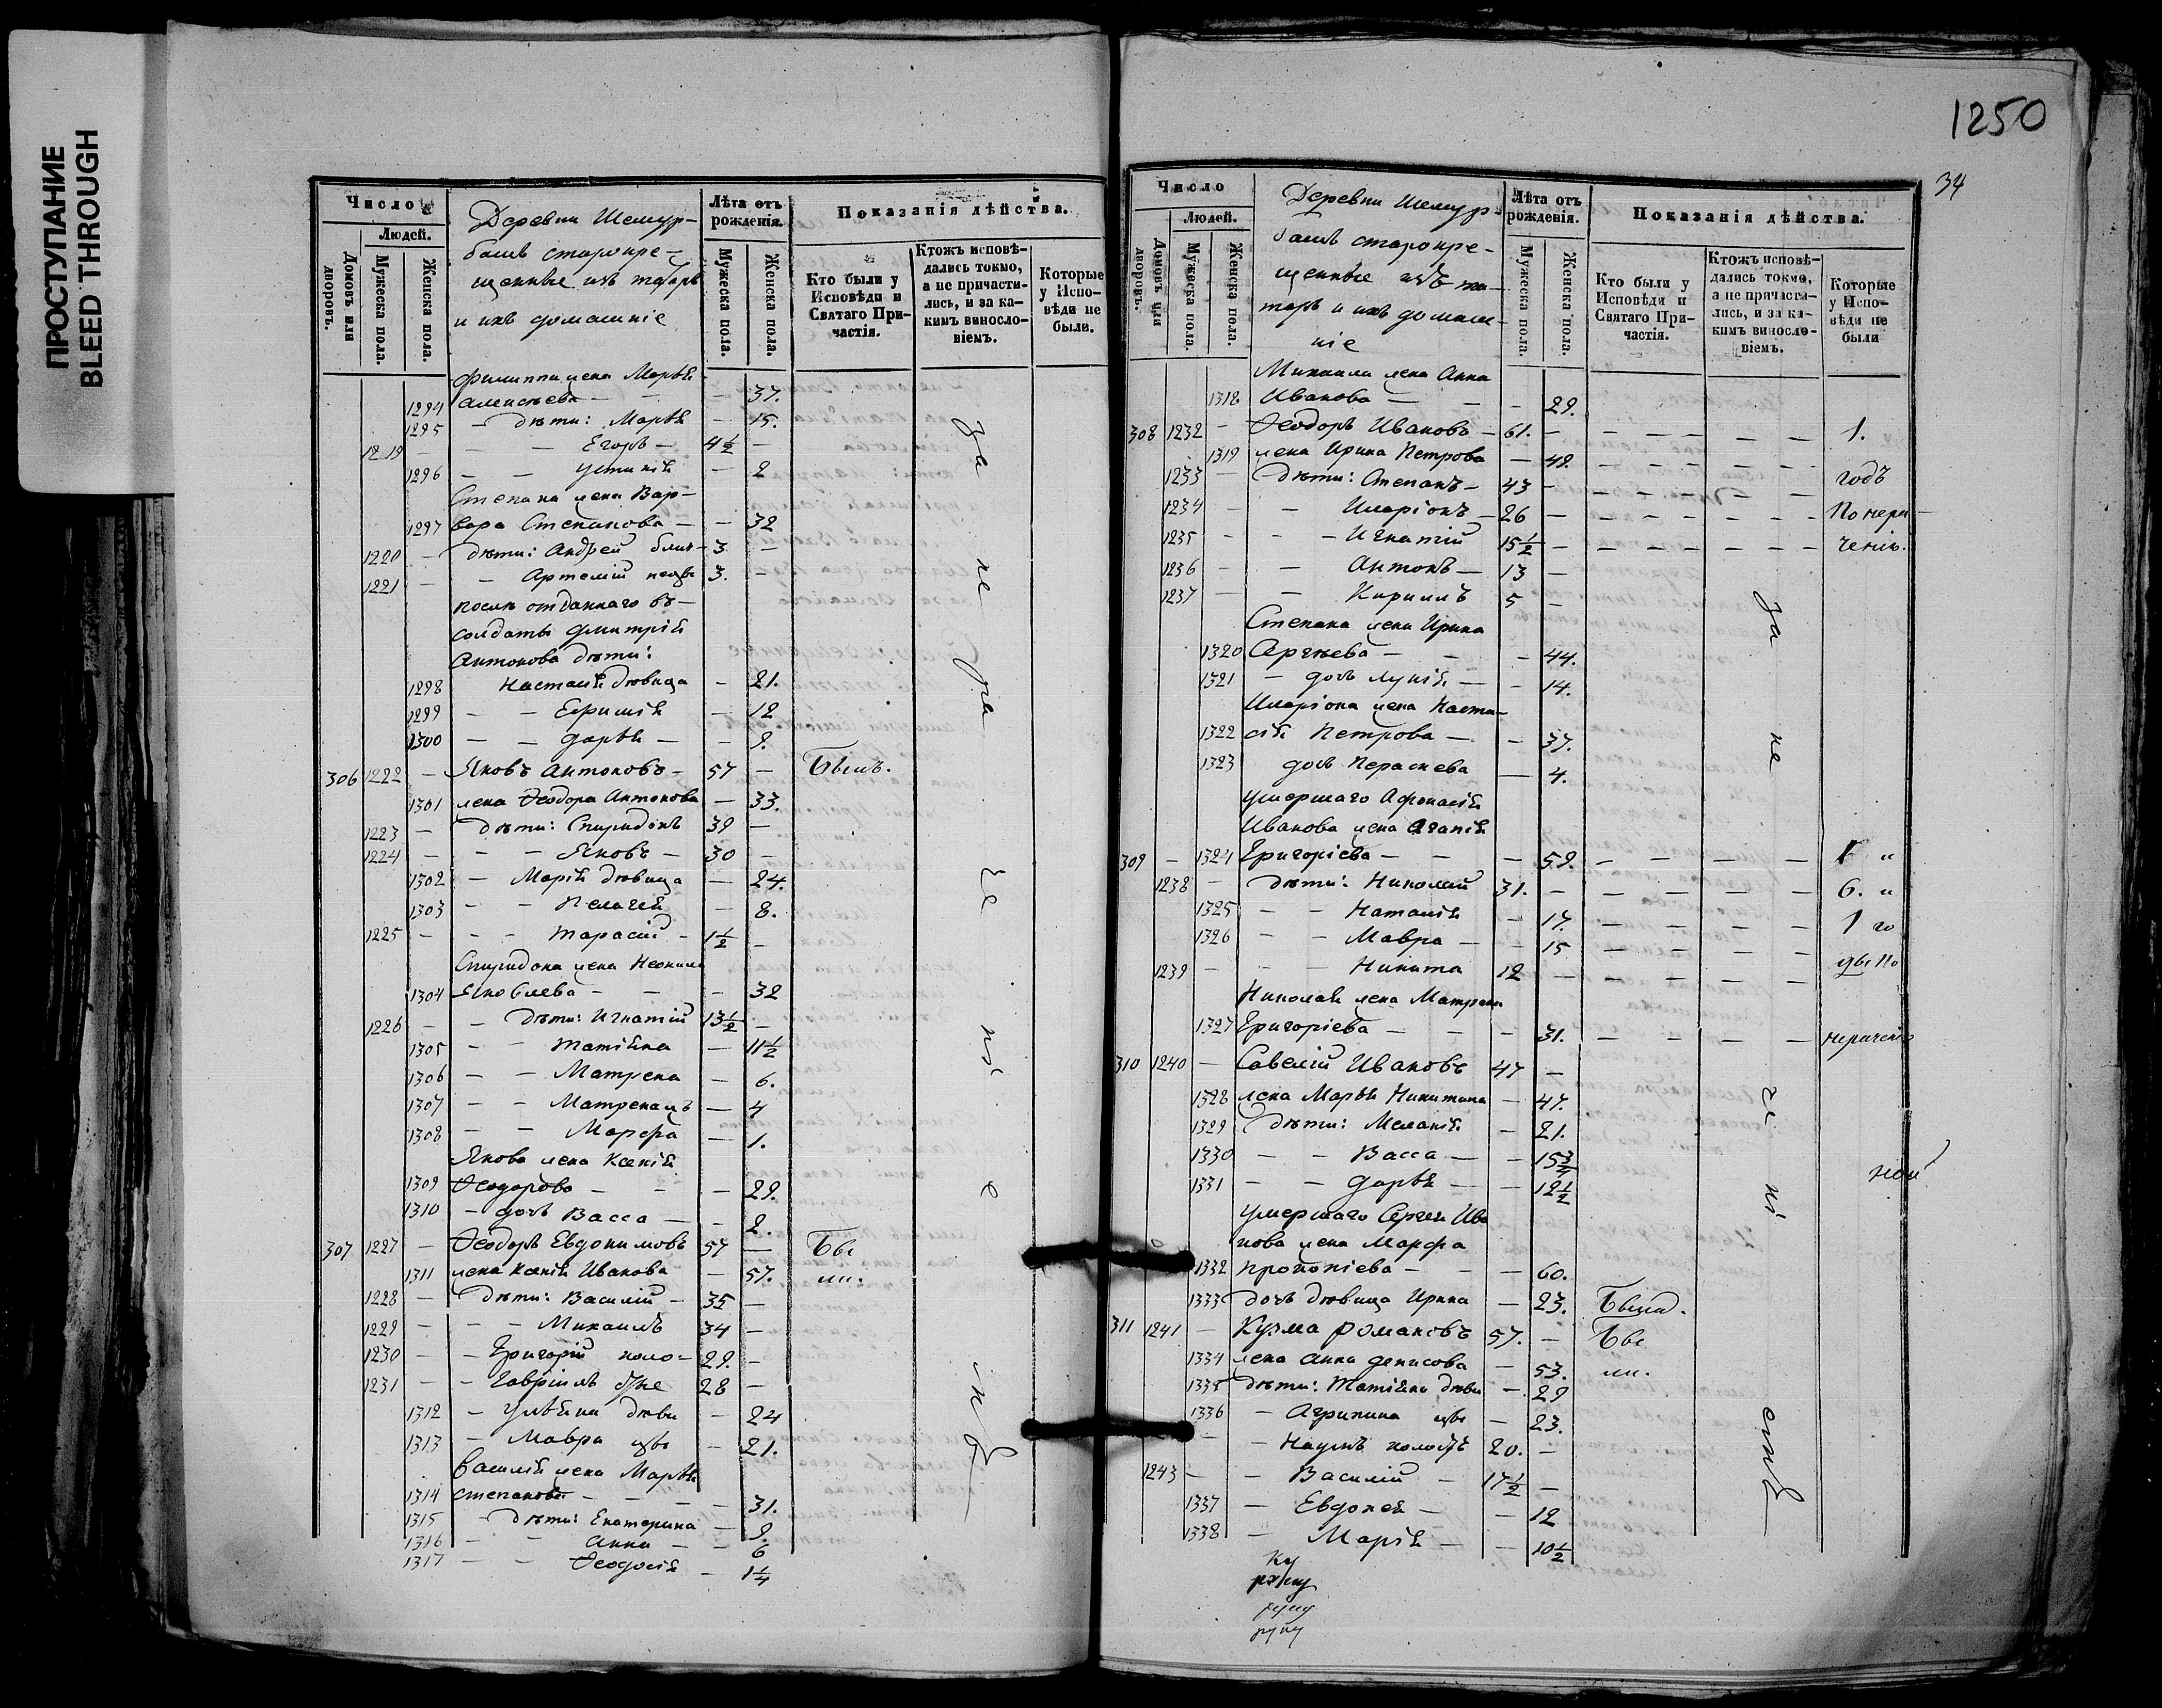 ПРОСТУПАНИЕ
BLEED THROUGH
Число
Людей.
Домовъ или дворовъ.
Мужеска пола.
Женска пола.
Деревни Шемур-
башъ старокре-
щенные изъ татаръ
и ихъ домашніе
Лѣта отъ рожденія.
Мужеска пола.
Женска пола.
Показанія дѣйства.
Кто были у Исповѣди и Святаго При-частія.
Ктожъ исповѣ-дались токмо, а не причасти-лись, и за ка-кимъ винослo-віемъ.
Которые у Испо-вѣди не были.
Филиппа жена Марья
1294 Алексѣева — 37.
1295 — дѣти: Марья — 15.
1219 — Егоръ — 4½ —
1296 — — Устинія — 2
Степана жена Вар-
1297 вара Степанова — — 32
1220 — дѣти: Андрей близ- 3 —
1221 — — Артемій нецы 3. —
послѣ отданнаго въ
солдаты Дмитрія
Антонова дѣти:
1298 Настасія дѣвица — 21.
1299 — — Ефимія — 12
1300 — — Дарья — — 9.
306 1222 — Яковъ Антоновъ — 57 — Былъ.
1301 жена Ѳеодора Антонова — 33.
1223 — дѣти: Спиридонъ 39 —
1224 — — Яковъ — 30 —
1302 — Марія дѣвица — 24.
1303 — — Пелагея — 8.
1225 — — — Тарасій — 1½ —
Спиридона жена Неонила
1304 Яковлева — — — 32
1226 — — дѣти: Игнатій 13½ —
1305 — — Татіана — 11½
1306 — — Матрена — 6.
1307 — — Матрена — 4
1308 — — Марфа — 1.
Якова жена Ксенія
1309 Ѳеодорова — — — 29.
1310 — дочь Васса — — 2.
307 1227 — Ѳеодоръ Евдокимовъ 57 — Бы
1311 жена Ксенія Иванова — 57. ли.
1228 — дѣти: Василій — 35 —
1229 — — — Михаилъ 34 —
1230 — — Григорій холо- 29. —
1231 — — Гавріилъ стые 28 —
1312 — Ульяна дѣви — 24
1313 — Мавра цы — 21.
Василія жена Марья
1314 Степанова — — — 31.
1315 — дѣти: Екатерина — 9.
1316 — — Анна — — 6
1317 — — Ѳеодосія — 1¼
за не ра че ні е мъ
1250
34
Число
Людей.
Домовъ или дворовъ.
Мужеска пола.
Женска пола.
Деревни Шемур-
башъ старокре-
щенные изъ та-
таръ и ихъ домаш-
ніе
Лѣта отъ рожденія.
Мужеска пола.
Женска пола.
Показанія дѣйства.
Кто были у Исповѣди и Святаго При-частія.
Ктожъ исповѣ-дались токмо, а не причасти-лись, и за ка-кимъ винослo-віемъ.
Которые у Испо-вѣди не были
Михаила жена Анна
1318 Иванова — — — 29.
308 1232 — Ѳеодоръ Ивановъ — 61. — 1.
1319 жена Ирина Петрова — 49.
1233 — дѣти: Степанъ — 43 — годъ
1234 — — Иларіонъ — 26 — По нера-
1235 — — — Игнатій 15½ — ченію.
1236 — — Антонъ — 13 —
1237 — — Кириллъ 5 —
Степана жена Ирина
1320 Сергѣева — — — 44.
1321 — дочь Лукія — — 14.
Иларіона жена Наста-
1322 сія Петрова — — 37.
1323 дочь Пераскева — 4.
умершаго Афонасія
Иванова жена Агапія
309 — 1324 Григорієва — — — 59.
1238 — дѣти: Николай 31. — 6.
1325 — — Наталія — 17. 1 го
1326 — — Мавра — — 15
1239 — — — Никита 12 — ды По
Николая жена Матрена
1327 Григоріева — — — 31. нераченію
310 1240 — Савелій Ивановъ 47 —
1328 жена Марья Никитина — 47.
1329 дѣти: Меланія — 21.
1330 — — Васса — — 15¾
1331 — — Дарья — — 12½
умершаго Сергея Ива
нова жена Марфа
1332 Прокопіева — — — 60.
1333 дочь дѣвица Ирина — 23. Была.
311 1241 — Кузма Романовъ 57. — Бы
1334 жена Анна Денисова — 53. ли.
1335 дѣти: Татіана дѣви — 29
1336 — Агрипина цы — 23.
— — Наумъ холостъ 20. —
1243 — — Василій — 17½ —
1337 — Евдокея — — 12
1338 — Марія — — 10½
за не че ні емъ